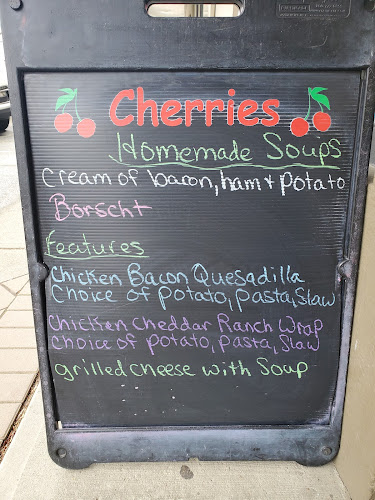 Cherries
Homemade Soups
Cream of bacon, ham + potato
Borscht
Features
Chicken Bacon Quesadilla
Choice of potato, pasta, slaw
Chicken Cheddar Ranch Wrap
Choice of potato, pasta, slaw
grilled cheese with Soup